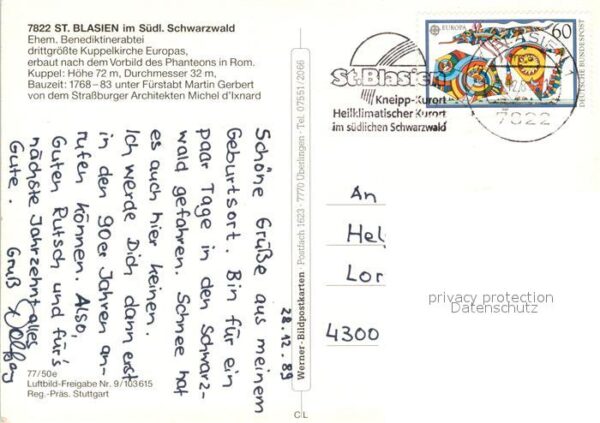 7822 ST. BLASIEN im Südl. Schwarzwald
Ehem. Benediktinerabtei
drittgrößte Kuppelkirche Europas,
erbaut nach dem Vorbild des Phanteons in Rom.
Kuppel: Höhe 72 m, Durchmesser 32 m,
Bauzeit: 1768–83 unter Fürstabt Martin Gerbert
von dem Straßburger Architekten Michel d'Ixnard
28.12.89
Schöne Grüße aus meinem
Geburtsort. Bin für ein
paar Tage in den Schwarz-
wald gefahren. Schnee hat
es auch hier keinen.
Ich werde Dich dann erst
in den 90er Jahren an-
rufen können. Also,
Guten Rutsch und für's
nächste Jahrzehnt alles
Gute.
Gruß Wolfgang
77/50e
Luftbild-Freigabe Nr. 9/103615
Reg.-Präs. Stuttgart
Werner-Bildpostkarten · Postfach 1623 · 7770 Überlingen · Tel. 07551/2066
CL
St. Blasien
Kneipp-Kurort
Heilklimatischer Kurort
im südlichen Schwarzwald
EUROPA
60
DEUTSCHE BUNDESPOST
BLASIEN
7822
An
Hel
Lor
4300
privacy protection
Datenschutz